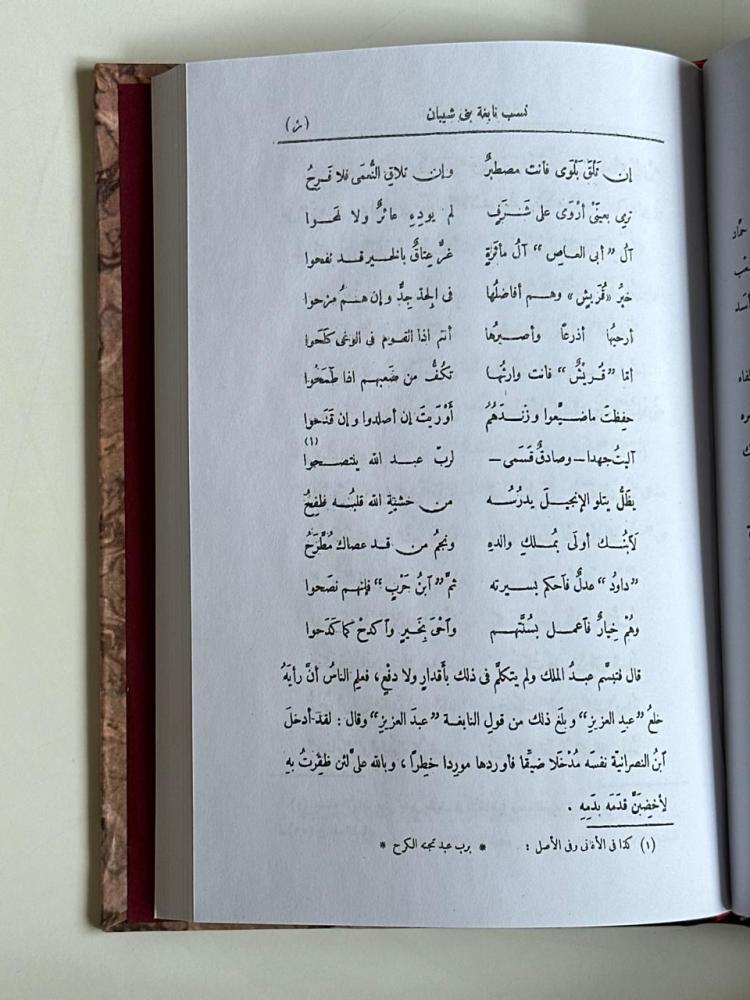 نسب نابغة بنى شيبان (ز)
إن تَلْقَ بَلْوَى فأنت مصطبرٌ وإن تلاقِ النُّعمَى فلا فَرِحُ
ترمِى بعينَىْ أَرْوَى على شَرَفٍ لم يوذِهِ عائرٌ ولا لَحَوا
آل "أبى العاص" آلُ مأثُرَةٍ غرٌّ عِتاقٌ بالخير قد نفحوا
خيرُ «قُرَيشٍ» وهم أفاضلُها فى الجِدّ جِدٌّ وإن همُ مزحوا
أرحبُها أذرعًا وأصبرُها أنتم اذا القوم فى الوغى كَلَحوا
أمّا "قُريشٌ" فأنت وارثُها تكُفُّ من ضَعبِهم اذا طَمَحُوا
حفِظتَ ماضيَّعوا وزَندَهُمُ أَوْرَيتَ إن أصلدوا وإن قَدَحوا
آليتُ جهدا – وصادقٌ قَسَمى – لربّ عبد الله ينتصحوا (١)
يظَلُّ يتلو الإنجيلَ يدرُسُه من خشيَةِ الله قلبُه طَفِحُ
لَآبنُك أولَى بمُلكِ والدهِ ونجمُ من قد عصاك مُطَّرَحُ
"داودُ" عدلٌ فآحكم بسيرته ثمّ "آبنُ حَرْبٍ" فإنهم نصَحوا
وهُمْ خِيارٌ فآعمل بسُنَّتهم وآحْىَ بخَيرٍ وآكدحْ كما كَدَحوا
قال فتبسَّم عبدُ الملك ولم يتكلّم فى ذلك بأقدارٍ ولا دفْع، فعلِم الناسُ أنّ رأيَهُ
خلعُ "عبد العزيز" وبلغ ذلك من قول النابغة "عبدَ العزيز" وقال : لقد أدخلَ
آبنُ النصرانيّة نفسَه مُدْخَلا ضيِّقًا فأوردها موردا خطِرًا ، وبالله علىّ لئن ظفِرتُ بهِ
لأخضِبَنَّ قدَمَه بدَمِهِ .
(١) كذا فى الأغانى وفى الأصل : * برب عبد تجنه الكرح *